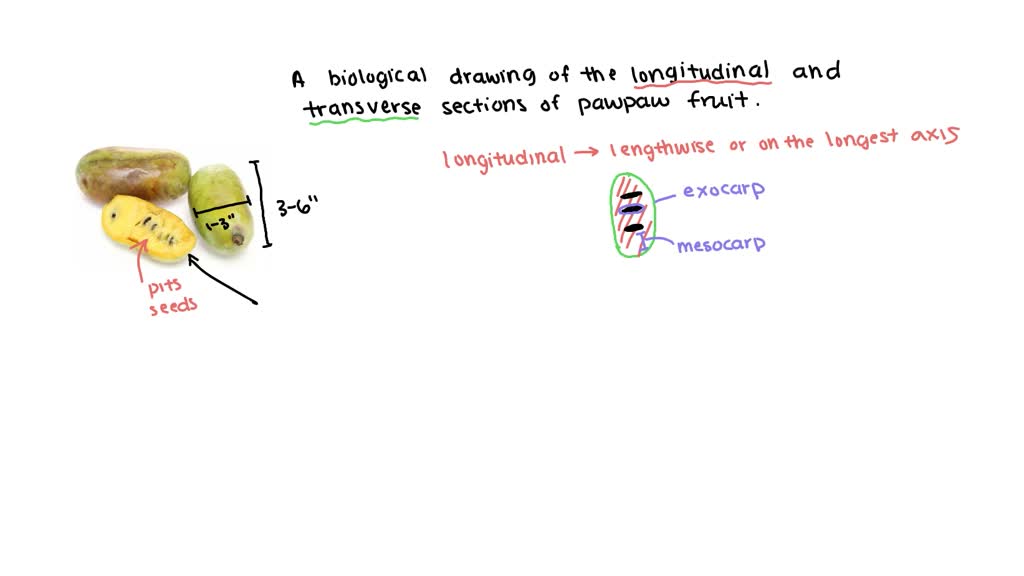 A biological drawing of the longitudinal and
transverse sections of pawpaw fruit.
longitudinal → lengthwise or on the longest axis
exocarp
mesocarp
3-6"
1-3"
pits
seeds